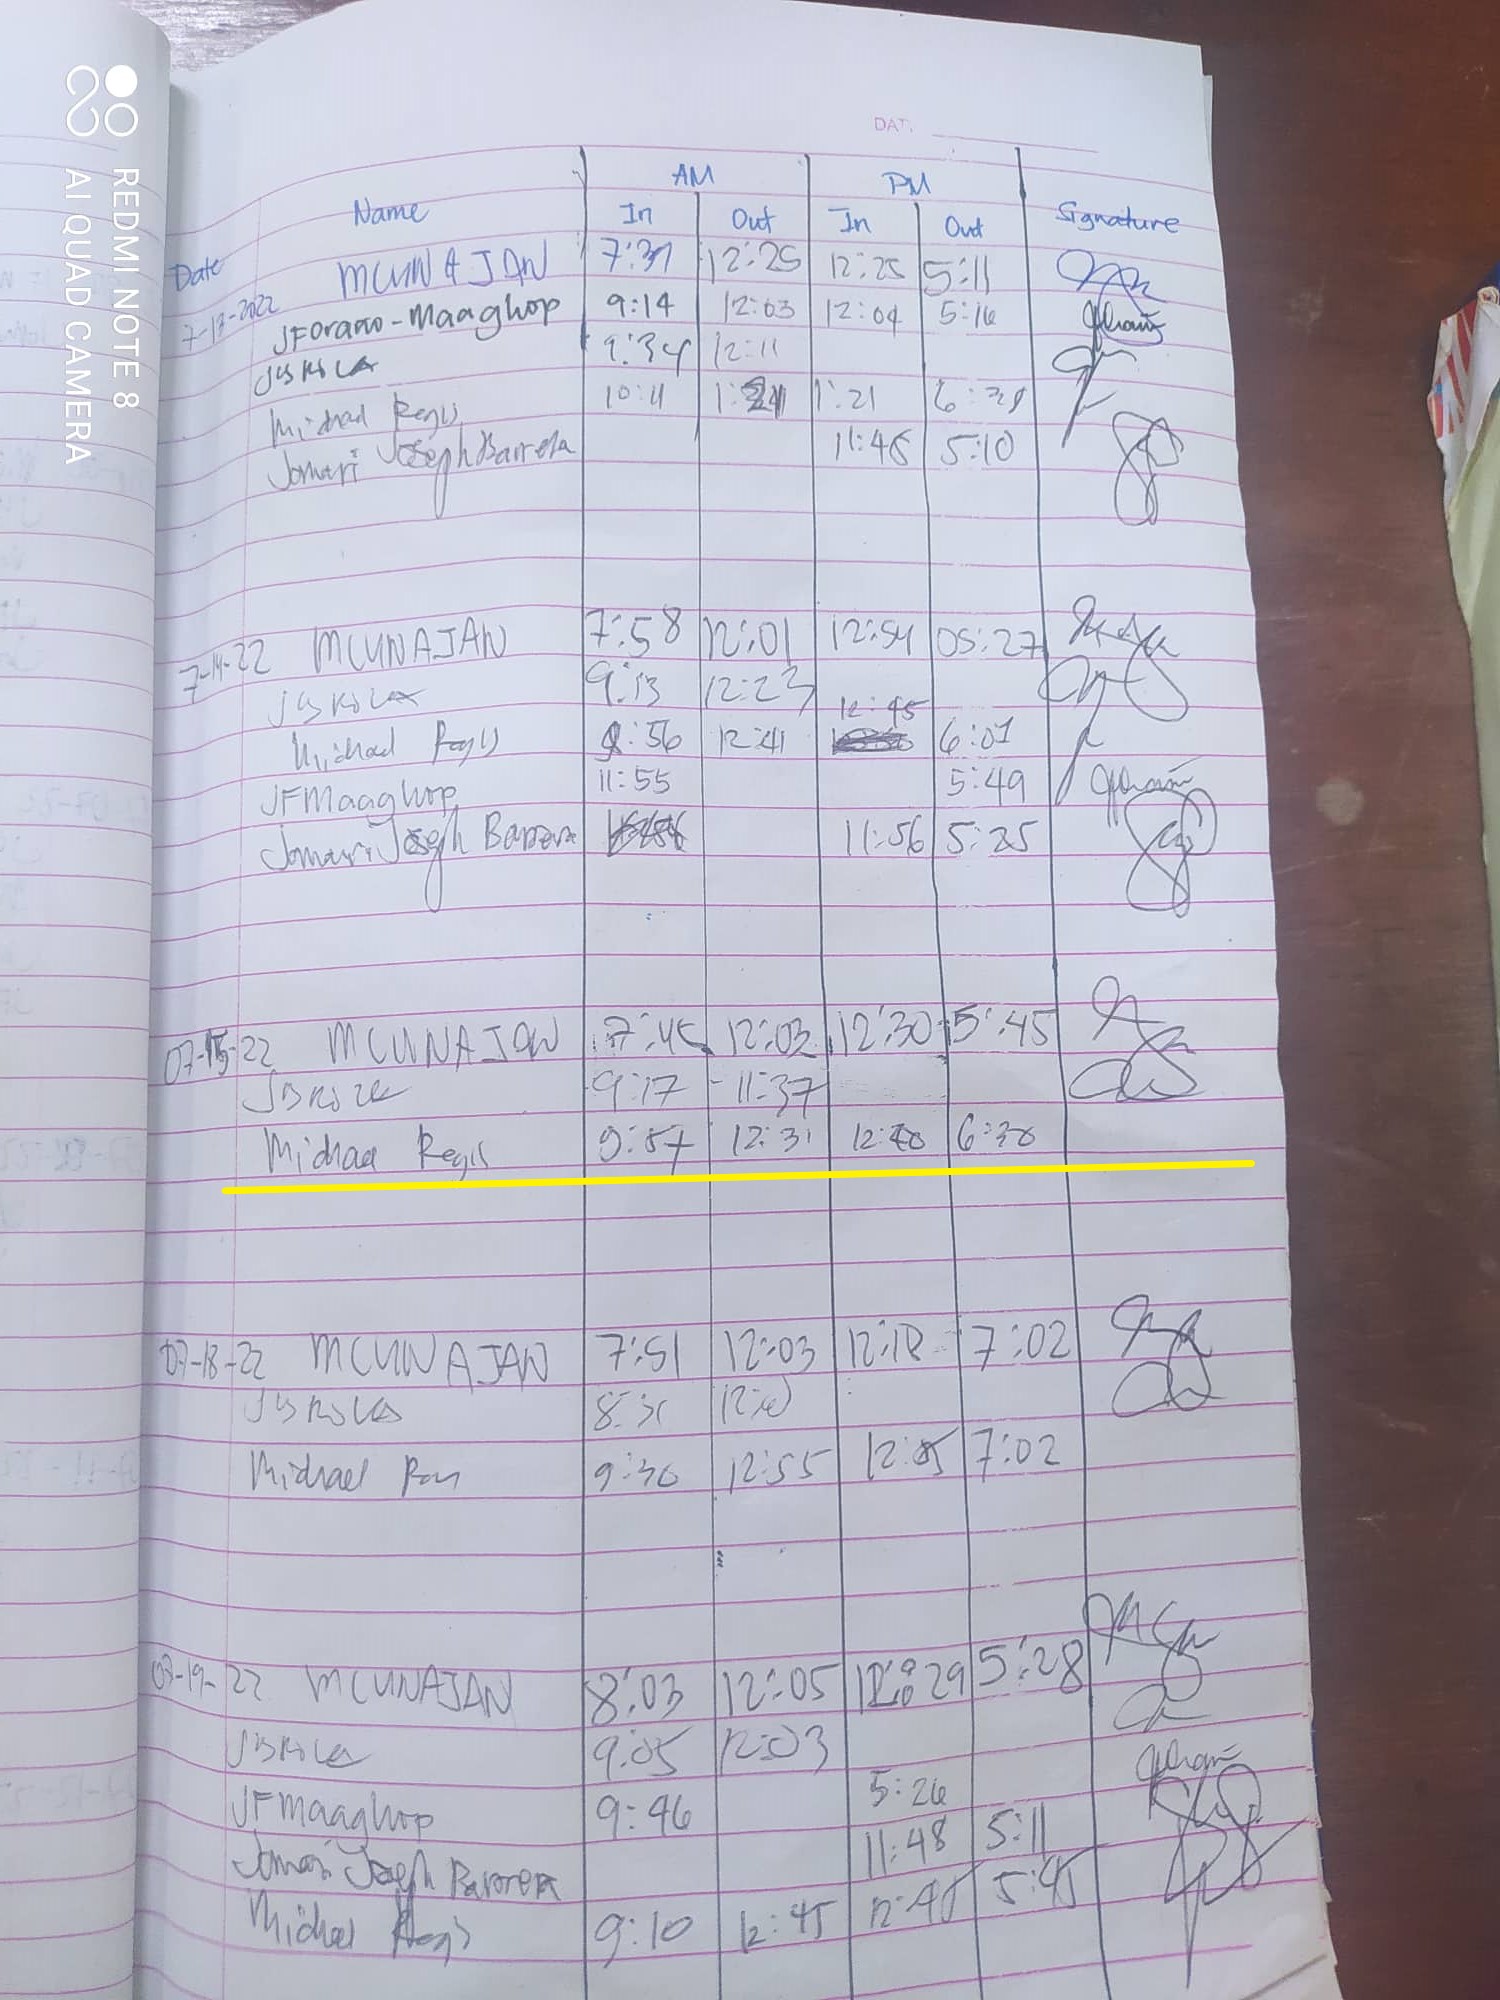 REDMI NOTE 8
AI QUAD CAMERA
DATE
AM PM
Date Name In Out In Out Signature
7-13-2022 MCUNAJAN 7:31 12:25 12:25 5:11
JFOraño-Maaghop 9:14 12:03 12:04 5:16
9:34 12:11
Michael Regis 10:11 1:21
Jomari Joseph Barrera 11:45 5:10
7-14-22 MCUNAJAN 7:58 12:01 12:54 05:27
9:13 12:23
12:45
Michael Regis 12:41 6:01
JFMaaghop 11:55 5:49
Jomari Joseph Barrera 11:56 5:25
07-15-22 MCUNAJAN 7:45 12:03 12:30 5:45
9:17 11:37
Michael Regis 9:57 12:31 6:30
07-18-22 MCUNAJAN 7:51 12:03 12:18 7:02
8:31
Michael 9:30 12:55 7:02
07-19-22 MCUNAJAN 8:03 12:05 12:29 5:28
9:05 12:03
JFMaaghop 9:46 5:26
Jomari Joseph Barrera 11:48 5:11
Michael Regis 9:10 12:45 12:45 5:45